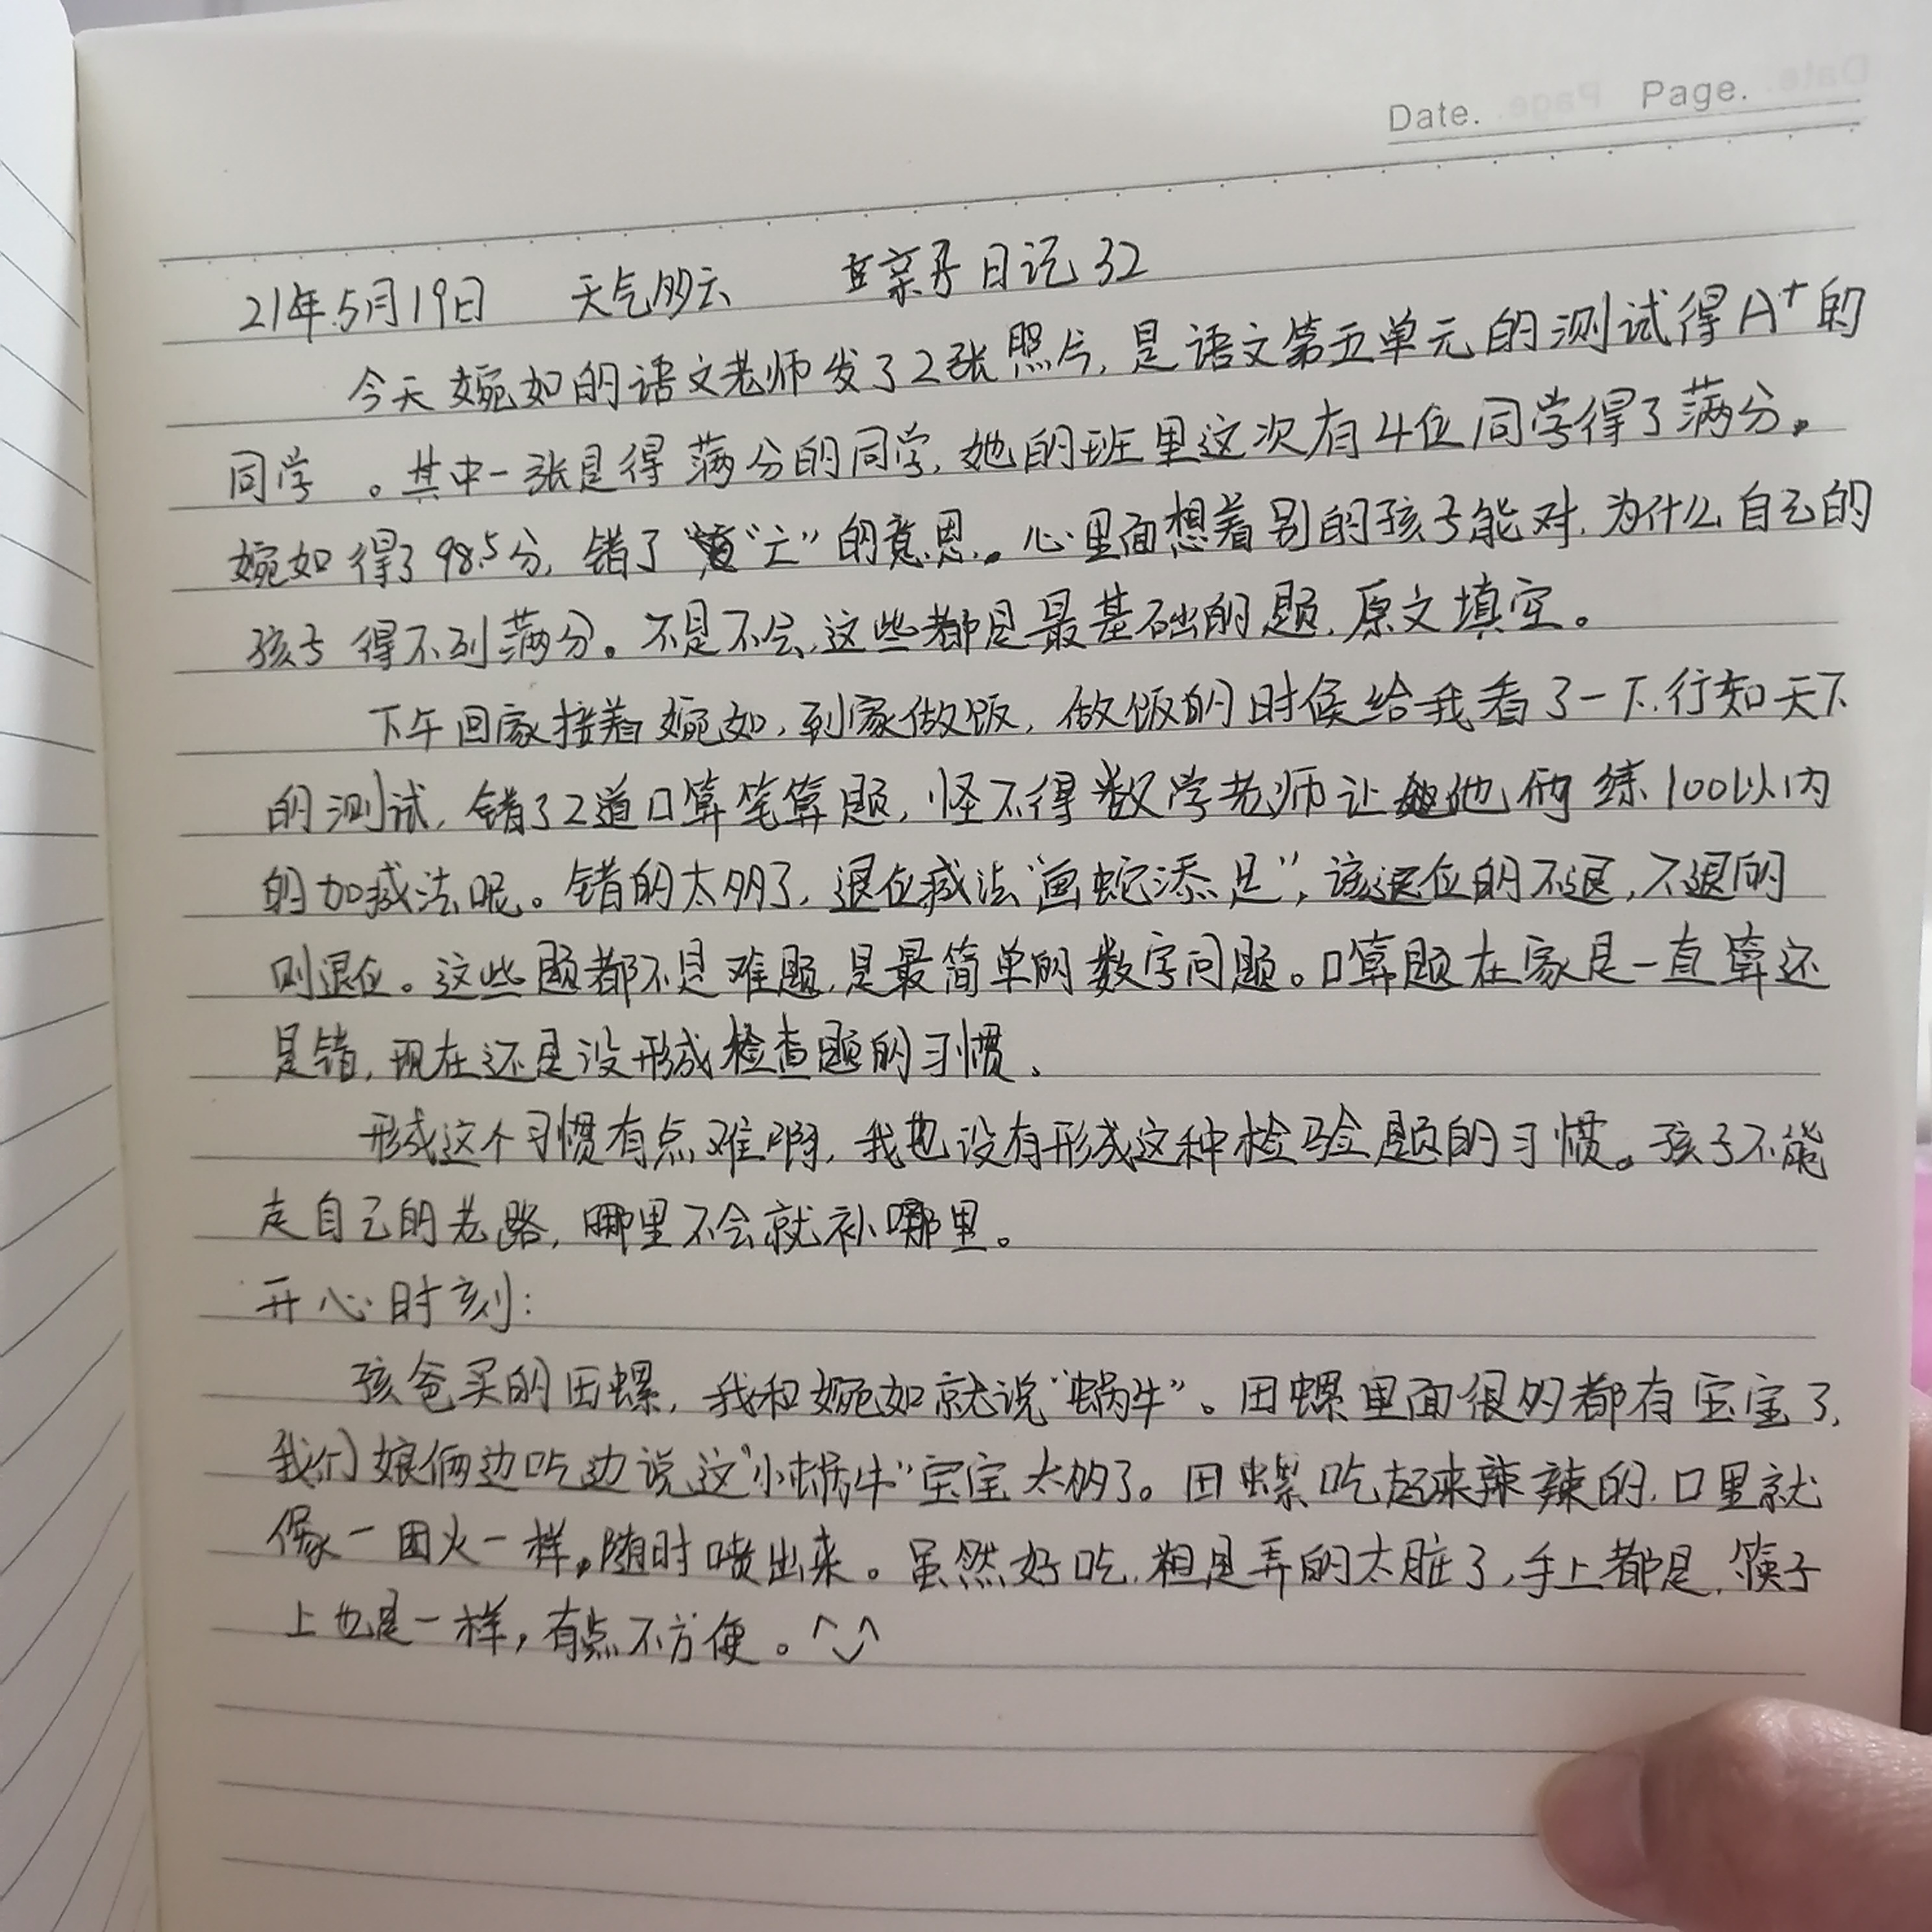 Date. Page.
21年5月19日 天气多云 亲子日记32
今天婉如的语文老师发了2张照片,是语文第五单元的测试得A+的
同学。其中一张是得满分的同学,她的班里这次有4位同学得了满分。
婉如得了98.5分,错了“亡”的意思。心里面想着别的孩子能对,为什么自己的
孩子得不到满分。不是不会,这些都是最基础的题,原文填空。
下午回家接着婉如,到家做饭,做饭的时候给我看了一下,行知天下
的测试,错了2道口算笔算题,怪不得数学老师让他俩练100以内
的加减法呢。错的太多了,退位减法“画蛇添足”,该退位的不退,不退的
则退位。这些题都不是难题,是最简单的数字问题。口算题在家是一直算还
是错,现在还是没形成检查题的习惯。
形成这个习惯有点难啊,我也没有形成这种检验题的习惯。孩子不能
走自己的老路,哪里不会就补哪里。
开心时刻:
孩爸买的田螺,我和婉如就说“蜗牛”。田螺里面很多都有宝宝了,
我们娘俩边吃边说这“小蜗牛”宝宝太多了。田螺吃起来辣辣的,口里就
像一团火一样,随时喷出来。虽然好吃,但是弄的太脏了,手上都是,筷子
上也是一样,有点不方便。^‿^